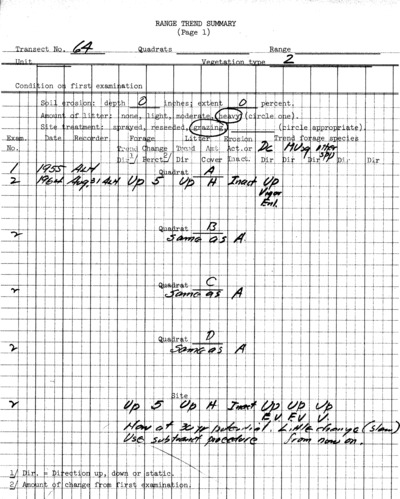 RANGE TREND SUMMARY
(Page 1)
Transect No. 6A Quadrats Range
Unit Vegetation type 2
Condition on first examination
Soil erosion: depth 0 inches; extent 0 percent.
Amount of litter: none, light, moderate, heavy (circle one).
Site treatment: sprayed, reseeded, grazing, (circle appropriate).
Exam. Date Recorder Forage Litter Erosion Trend forage species
No. Trend Change Trend Amt Act.or Dc other
Dir 1/ Perct 2/ Dir Cover Inact. Dir Dir Dir Dir
Quadrat A
1 1955 ALH
2 Aug 31 ALH Up 5 Up H Inact Up
Vigor
Quadrat B
2 Same as A.
Quadrat C
2 Same as A
Quadrat D
2 Same as A
Site
2 Up 5 Up H Inact Up Up Up
E.V. E.V. V.
Now at potential. Little change (slow)
Use subtract procedure from now on.
1/ Dir. = Direction up, down or static.
2/ Amount of change from first examination.